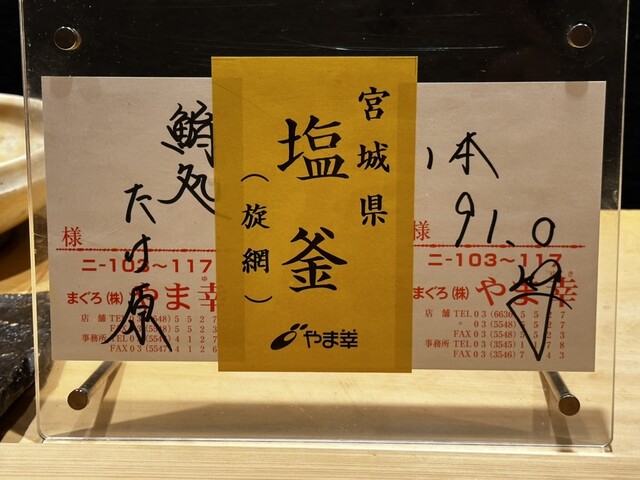 鮨処
たけ原
様
ニ-103〜117
まぐろ(株)やま幸
店舗 TEL 03 (5548) 5527
FAX 03 (5548) 5
事務所 TEL 0 (554 ) 4127
FAX 03 (5547) 4126
宮城県
塩釜
(旋網)
やま幸
1本
91.0
様
ニ-103〜117
まぐろ(株)やま幸
店舗 TEL 03 (6636) 5
03 (5548) 5
FAX 03 (5548) 5
事務所 TEL 03 (3545) 1
FAX 03 (3546) 7